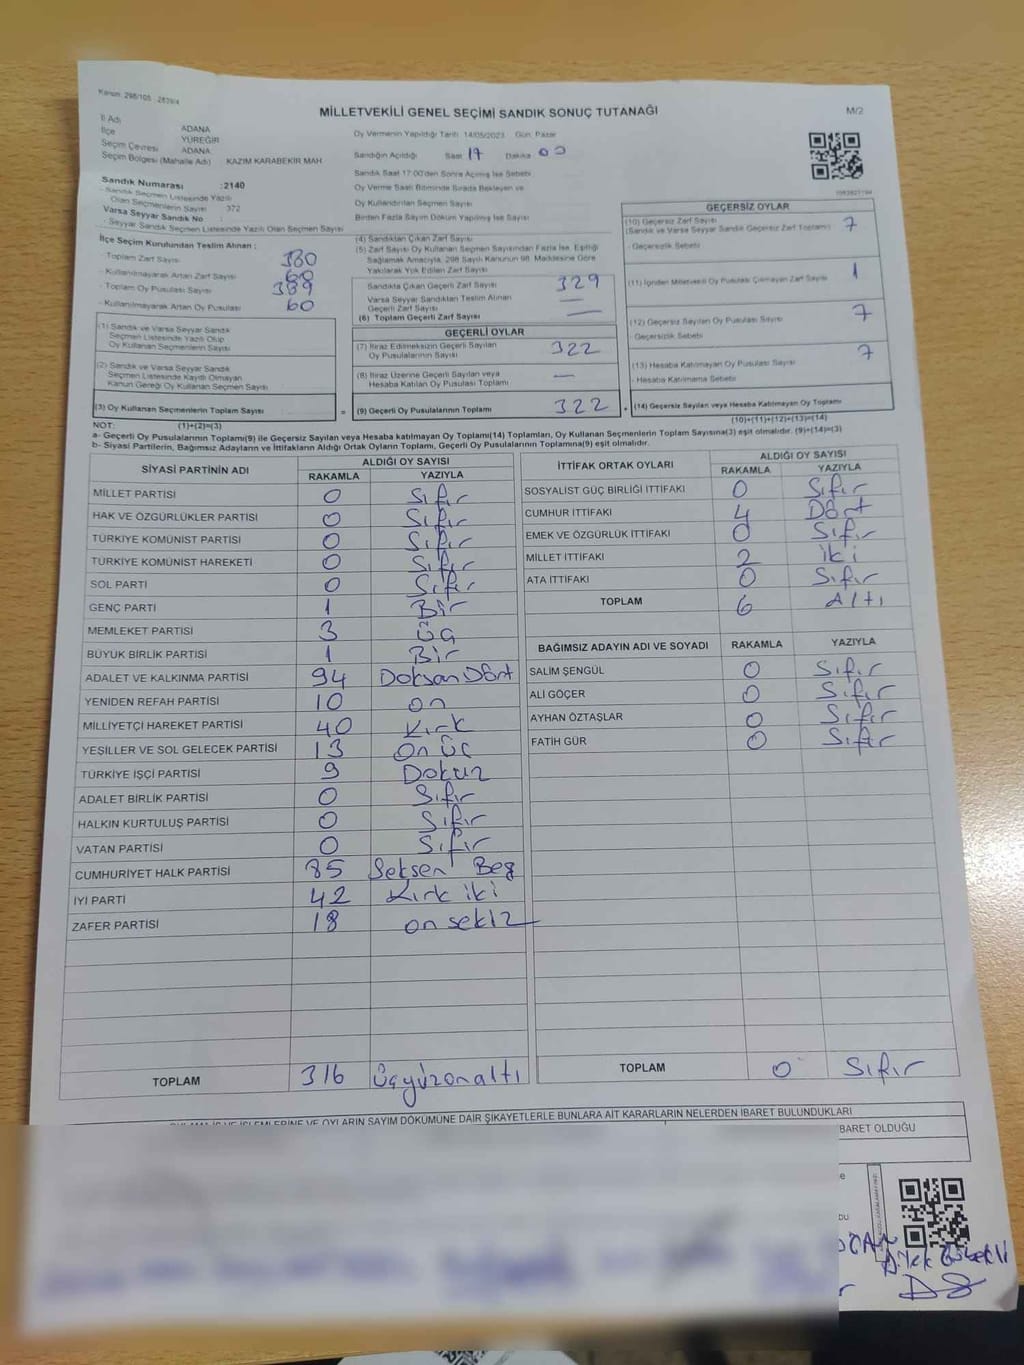 Kanun: 298/105 2839/4
MİLLETVEKİLİ GENEL SEÇİMİ SANDIK SONUÇ TUTANAĞI
M/2
İl Adı ADANA
İlçe YÜREĞİR
Seçim Çevresi ADANA
Seçim Bölgesi (Mahalle Adı) KAZIM KARABEKİR MAH
Oy Vermenin Yapıldığı Tarih: 14/05/2023 Gün: Pazar
Sandığın Açıldığı Saat 17 Dakika 00
Sandık Saat 17:00'den Sonra Açılmış İse Sebebi
Oy Verme Saati Bitiminde Sırada Bekleyen ve
Oy Kullandırılan Seçmen Sayısı
Birden Fazla Sayım Döküm Yapılmış İse Sayısı
Sandık Numarası : 2140
- Sandık Seçmen Listesinde Yazılı
Olan Seçmenlerin Sayısı 372
Varsa Seyyar Sandık No :
- Seyyar Sandık Seçmen Listesinde Yazılı Olan Seçmen Sayısı
İlçe Seçim Kurulundan Teslim Alınan :
- Toplam Zarf Sayısı 380
- Kullanılmayarak Artan Zarf Sayısı
- Toplam Oy Pusulası Sayısı 389
- Kullanılmayarak Artan Oy Pusulası 60
(1) Sandık ve Varsa Seyyar Sandık
Seçmen Listesinde Yazılı Olup
Oy Kullanan Seçmenlerin Sayısı
(2) Sandık ve Varsa Seyyar Sandık
Seçmen Listesinde Kayıtlı Olmayan
Kanun Gereği Oy Kullanan Seçmen Sayısı
(3) Oy Kullanan Seçmenlerin Toplam Sayısı
(4) Sandıktan Çıkan Zarf Sayısı
(5) Zarf Sayısı Oy Kullanan Seçmen Sayısından Fazla İse, Eşitliği
Sağlamak Amacıyla, 298 Sayılı Kanunun 98. Maddesine Göre
Yakılarak Yok Edilen Zarf Sayısı
Sandıkta Çıkan Geçerli Zarf Sayısı 329
Varsa Seyyar Sandıktan Teslim Alınan
Geçerli Zarf Sayısı —
(6) Toplam Geçerli Zarf Sayısı —
GEÇERLİ OYLAR
(7) İtiraz Edilmeksizin Geçerli Sayılan
Oy Pusulalarının Sayısı 322
(8) İtiraz Üzerine Geçerli Sayılan veya
Hesaba Katılan Oy Pusulası Toplamı —
= (9) Geçerli Oy Pusulalarının Toplamı 322 +
GEÇERSİZ OYLAR
(10) Geçersiz Zarf Sayısı 7
(Sandık ve Varsa Seyyar Sandık Geçersiz Zarf Toplamı)
- Geçersizlik Sebebi
(11) İçinden Milletvekili Oy Pusulası Çıkmayan Zarf Sayısı 1
(12) Geçersiz Sayılan Oy Pusulası Sayısı 7
- Geçersizlik Sebebi
(13) Hesaba Katılmayan Oy Pusulası Sayısı 7
- Hesaba Katılmama Sebebi
(14) Geçersiz Sayılan veya Hesaba Katılmayan Oy Toplamı
NOT: (1)+(2)=(3) (10)+(11)+(12)+(13)=(14)
a- Geçerli Oy Pusulalarının Toplamı(9) ile Geçersiz Sayılan veya Hesaba katılmayan Oy Toplamı(14) Toplamları, Oy Kullanan Seçmenlerin Toplam Sayısına(3) eşit olmalıdır. (9)+(14)=(3)
b- Siyasi Partilerin, Bağımsız Adayların ve İttifakların Aldığı Ortak Oyların Toplamı, Geçerli Oy Pusulalarının Toplamına(9) eşit olmalıdır.
SİYASİ PARTİNİN ADI ALDIĞI OY SAYISI
RAKAMLA YAZIYLA
MİLLET PARTİSİ 0 Sıfır
HAK VE ÖZGÜRLÜKLER PARTİSİ 0 Sıfır
TÜRKİYE KOMÜNİST PARTİSİ 0 Sıfır
TÜRKİYE KOMÜNİST HAREKETİ 0 Sıfır
SOL PARTİ 0 Sıfır
GENÇ PARTİ 1 Bir
MEMLEKET PARTİSİ 3 Üç
BÜYÜK BİRLİK PARTİSİ 1 Bir
ADALET VE KALKINMA PARTİSİ 94 Doksan Dört
YENİDEN REFAH PARTİSİ 10 on
MİLLİYETÇİ HAREKET PARTİSİ 40 Kırk
YEŞİLLER VE SOL GELECEK PARTİSİ 13 On Üç
TÜRKİYE İŞÇİ PARTİSİ 9 Dokuz
ADALET BİRLİK PARTİSİ 0 Sıfır
HALKIN KURTULUŞ PARTİSİ 0 Sıfır
VATAN PARTİSİ 0 Sıfır
CUMHURİYET HALK PARTİSİ 85 Seksen Beş
İYİ PARTİ 42 Kırk iki
ZAFER PARTİSİ 18 on sekiz
TOPLAM 316 üçyüzonaltı
İTTİFAK ORTAK OYLARI ALDIĞI OY SAYISI
RAKAMLA YAZIYLA
SOSYALİST GÜÇ BİRLİĞİ İTTİFAKI 0 Sıfır
CUMHUR İTTİFAKI 4 Dört
EMEK VE ÖZGÜRLÜK İTTİFAKI 0 Sıfır
MİLLET İTTİFAKI 2 iki
ATA İTTİFAKI 0 Sıfır
TOPLAM 6 Altı
BAĞIMSIZ ADAYIN ADI VE SOYADI RAKAMLA YAZIYLA
SALİM ŞENGÜL 0 Sıfır
ALİ GÖÇER 0 Sıfır
AYHAN ÖZTAŞLAR 0 Sıfır
FATİH GÜR 0 Sıfır
TOPLAM 0 Sıfır
VE OYLARIN SAYIM DÖKÜMÜNE DAİR ŞİKAYETLERLE BUNLARA AİT KARARLARIN NELERDEN İBARET BULUNDUKLARI
BARET OLDUĞU